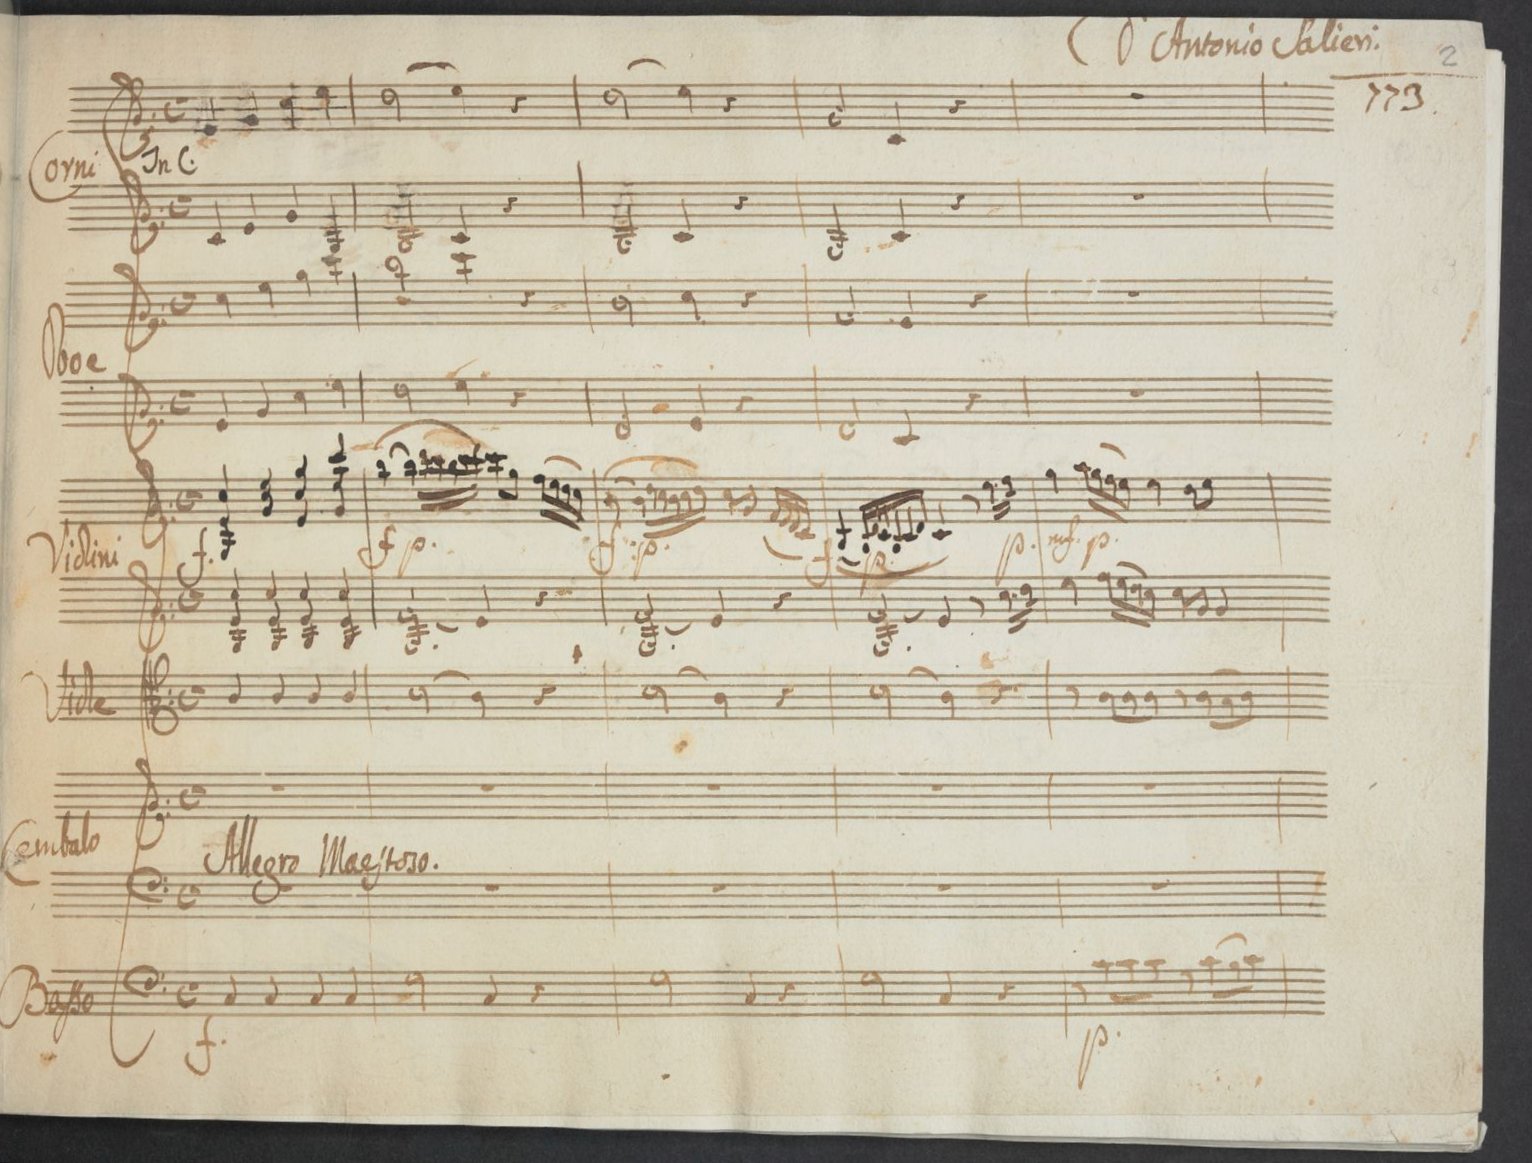 D'Antonio Salieri.
2
773.
Corni
In C.
Oboe
Violini
f.
f p.
f. p.
f p.
p.
mf. p.
Viole
Cembalo
Allegro Maestoso.
Basso
f.
p.